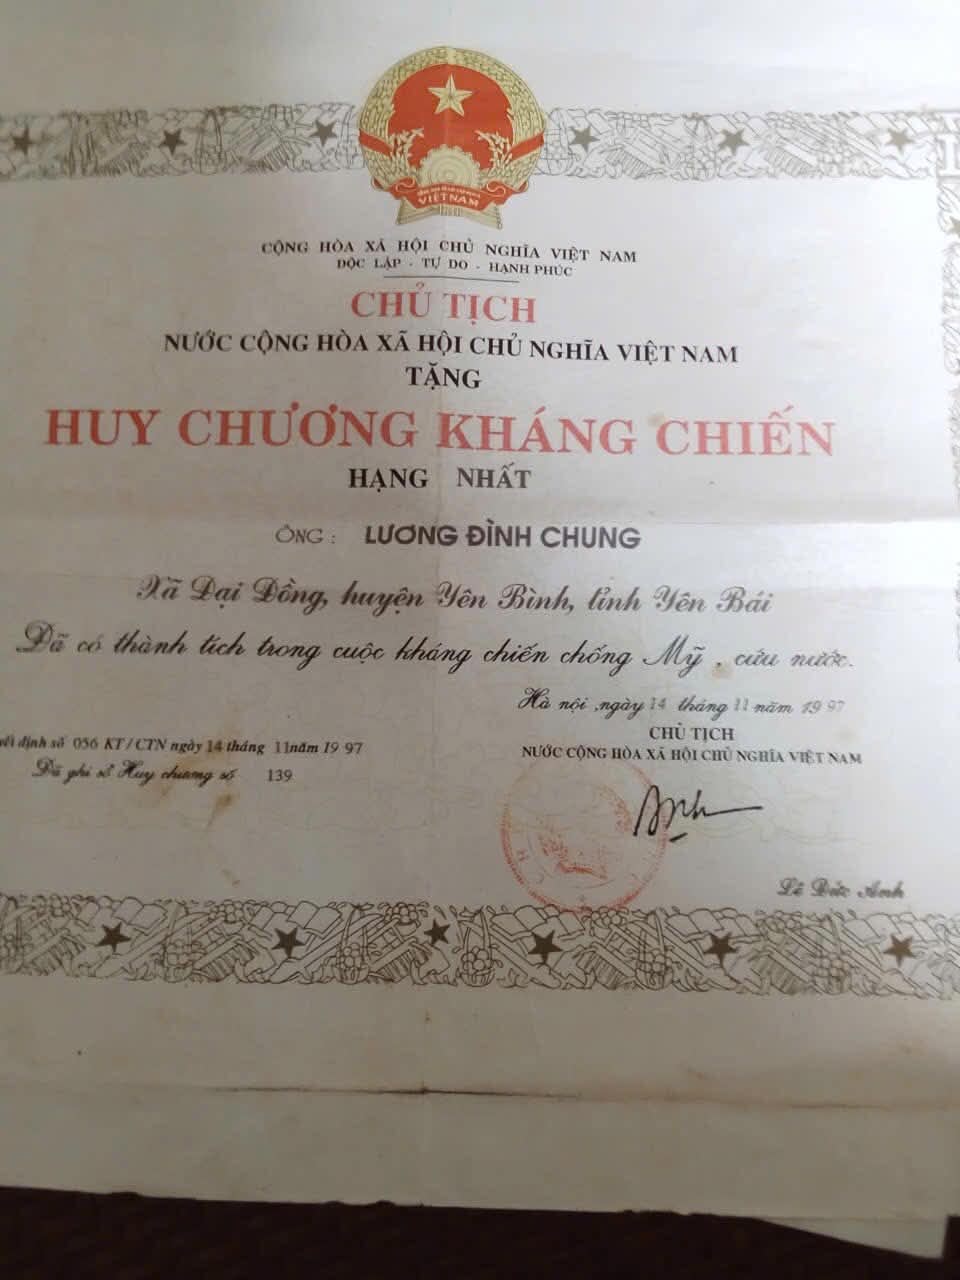 VIỆT NAM
CỘNG HÒA XÃ HỘI CHỦ NGHĨA VIỆT NAM
ĐỘC LẬP - TỰ DO - HẠNH PHÚC
CHỦ TỊCH
NƯỚC CỘNG HÒA XÃ HỘI CHỦ NGHĨA VIỆT NAM
TẶNG
HUY CHƯƠNG KHÁNG CHIẾN
HẠNG NHẤT
ÔNG : LƯƠNG ĐÌNH CHUNG
Xã Đại Đồng, huyện Yên Bình, tỉnh Yên Bái
Đã có thành tích trong cuộc kháng chiến chống Mỹ, cứu nước.
Hà nội, ngày 14 tháng 11 năm 1997
CHỦ TỊCH
NƯỚC CỘNG HÒA XÃ HỘI CHỦ NGHĨA VIỆT NAM
định số 056 KT/CTN ngày 14 tháng 11 năm 1997
Đã ghi sổ Huy chương số 139
Lê Đức Anh